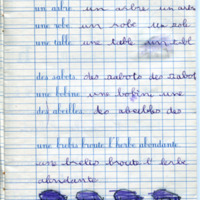 un arbre un arbre un arbre
une robe un robe un rob
une table une table un tabl
des sabots des sabots des sabot
une bobine une bobine une
des abeilles des abeilles des
une brebis broute l'herbe abondante
une brebis broute l'erbe
abondante